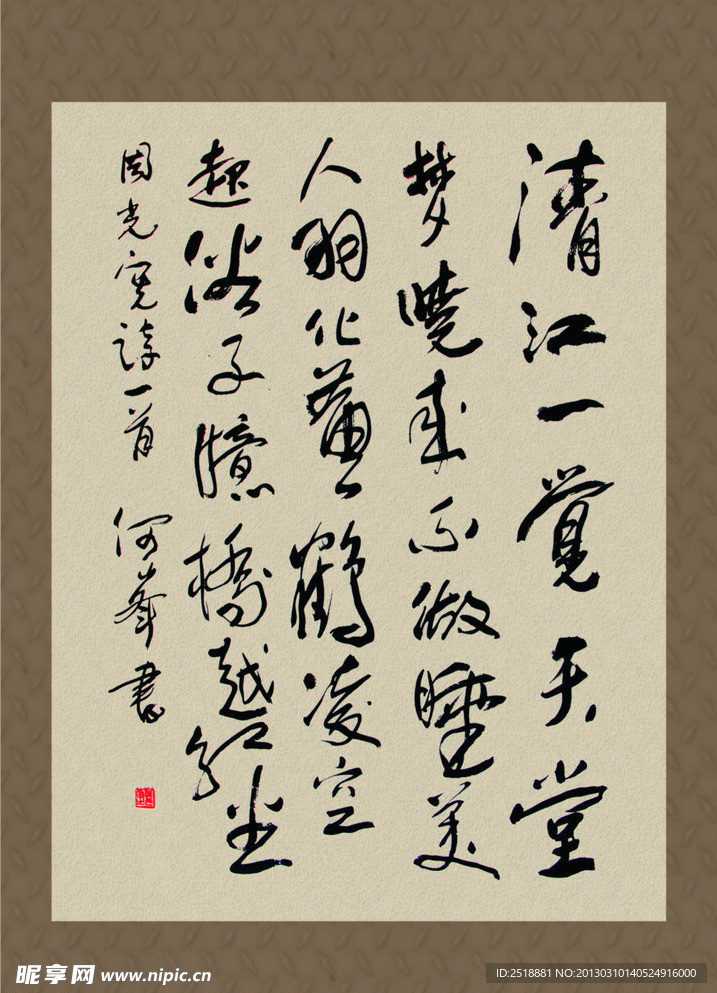 清江一覺天堂
梦曉来不做睡美
人羽化黄鶴凌空
起俗子臆橋越紅尘
周光寬詩一首 何峯書
昵享网 www.nipic.cn
ID:2518881 NO:20130310140524916000